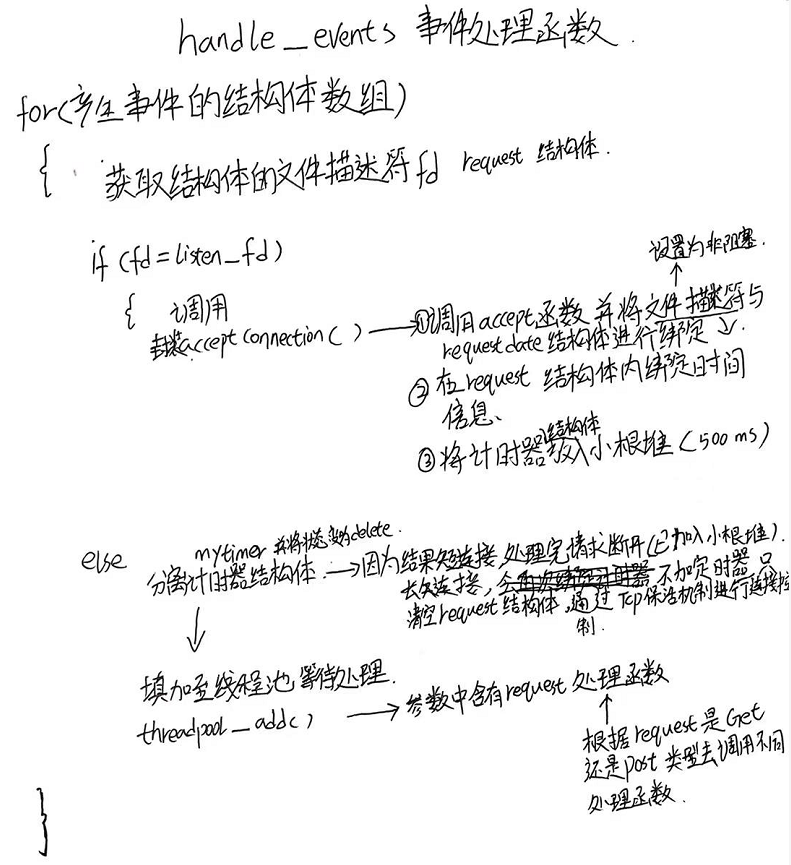 handle_events 事件处理函数.
for(产生事件的结构体数组)
{ 获取结构体的文件描述符fd request 结构体.
if (fd=listen_fd)
设置为非阻塞.
{ 调用
封装accept connection( )
①调用accept函数 并将文件描述符与
request date 结构体进行绑定
② 在request 结构体内绑定时间
信息、
结构体
③将计时器 放入小根堆(500ms)
else
mytimer 并将状态变为delete.
分离计时器结构体.
因为结果短连接,处理完请求断开(已加入小根堆).
长连接, 不加定时器 只
清空request结构体,通过Tcp保活机制进行连接控
制.
填加至线程池等待处理.
threadpool_add( )
参数中含有request 处理函数
根据request是Get
还是post 类型去调用不同
处理函数.
}